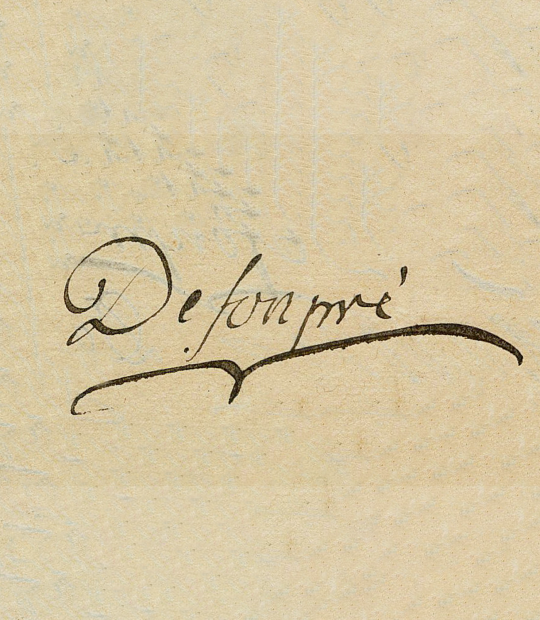 Desonpré